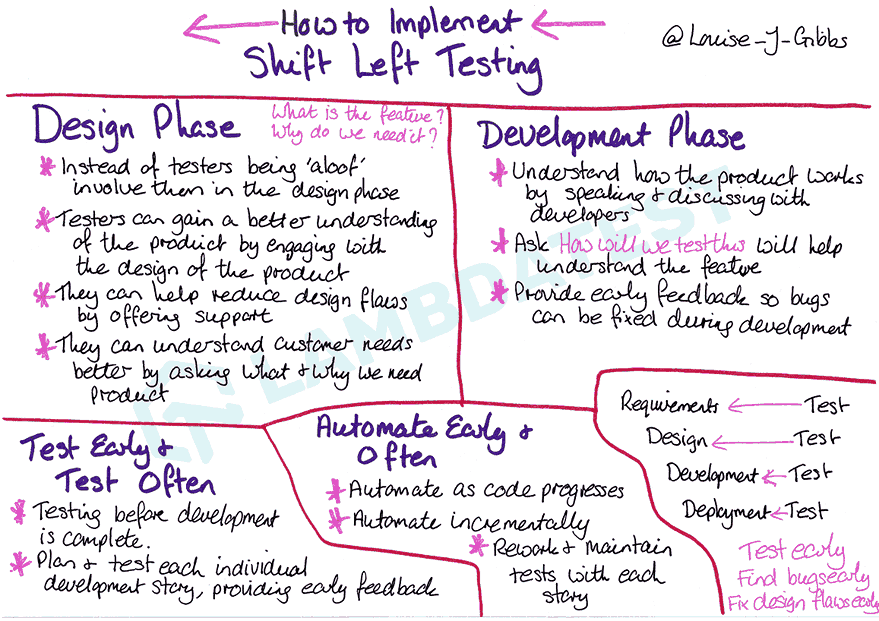 How to Implement
Shift Left Testing
@Louise_J_Gibbs
Design Phase
What is the feature?
Why do we need it?
* Instead of testers being 'aloof'
involve them in the design phase
* Testers can gain a better understanding
of the product by engaging with
the design of the product
* They can help reduce design flaws
by offering support
* They can understand customer needs
better by asking what & why we need
product
Development Phase
* Understand how the product works
by speaking & discussing with
developers
* Ask How will we test this will help
understand the feature
* Provide early feedback so bugs
can be fixed during development
Test Early &
Test Often
* Testing before development
is complete.
* Plan & test each individual
development story, providing early feedback
Automate Early &
Often
* Automate as code progresses
* Automate incrementally
* Rework & maintain
tests with each
story
Requirements ← Test
Design ← Test
Development ← Test
Deployment ← Test
Test early
Find bugs early
Fix design flaws early
LAMBDATEST